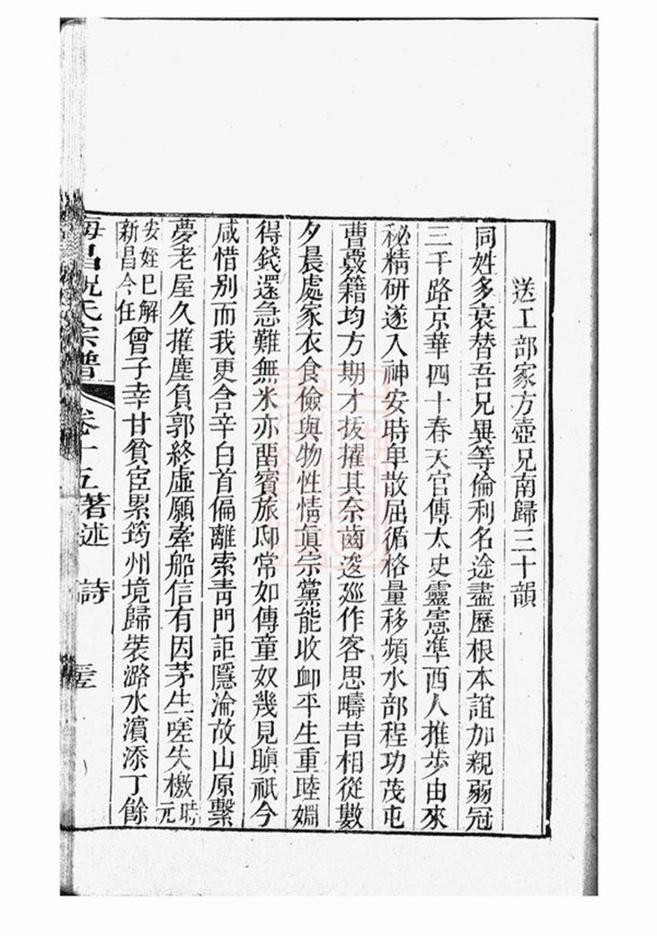 送工部家方壺兄南歸三十韻
同姓多衰替吾兄異等倫利名途盡歷根本誼加親弱冠
三千路京華四十春天官傳大史靈憲準西人推步由來
秘精研遂入神安時卑散屈循格量移頻水部程功茂屯
曹覈籍均方期才拔擢其奈齒逡廵作客思疇昔相從數
夕晨處家衣食儉與物性情眞宗黨能收卹平生重睦婣
得錢還急難無米亦畱賓旅邸常如傳童奴幾見瞋祇今
咸惜別而我更含辛白首偏離索靑門詎隱淪故山原繫
夢老屋久摧塵負郭終虛願牽船信有因茅生嗟失檄時元
安姪已解
新昌令任曾子幸甘貧宦累筠州境歸裝潞水濵添丁餘
海昌祝氏宗譜 卷十五著述 詩